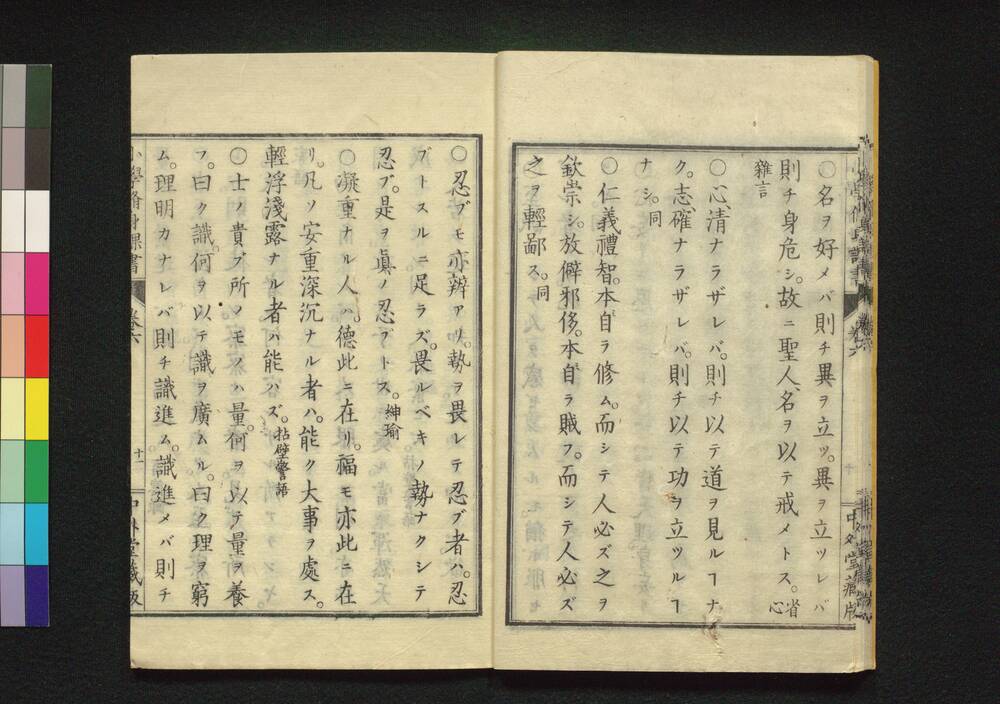 〇名ヲ好メバ則チ異ヲ立ツ。異ヲ立ツレバ
則チ身危シ。故ニ聖人、名ヲ以テ戒メトス。省心
雜言
〇心清ナラザレバ、則チ以テ道ヲ見ルヿナ
ク。志確ナラザレバ、則チ以テ功ヲ立ツルヿ
ナシ。同
〇仁義禮智。本自ラ修ム。而シテ人必ズ之ヲ
欽崇シ。放僻邪侈。本自ラ賊フ。而シテ人必ズ
之ヲ輕鄙ス。同
中外堂藏版
〇忍ブモ亦辨アリ。勢ヲ畏レテ忍ブ者ハ。忍
ブトスルニ足ラズ。畏ルベキノ勢ナクシテ
忍ブ。是ヲ眞ノ忍ブトス。紳瑜
〇凝重ナル人ハ。德此ニ在リ。福モ亦此ニ在
リ。凡ソ安重深沉ナル者ハ。能ク大事ヲ處ス。
輕浮淺露ナル者ハ能ハズ。拈壁警語
〇士ノ貴ブ所ノモノハ量。何ヲ以テ量ヲ養
フ。曰ク識。何ヲ以テ識ヲ廣ムル。曰ク理ヲ窮
ム。理明カナレバ則チ識進ム。識進メバ則チ
小學脩身課書 卷六 十一